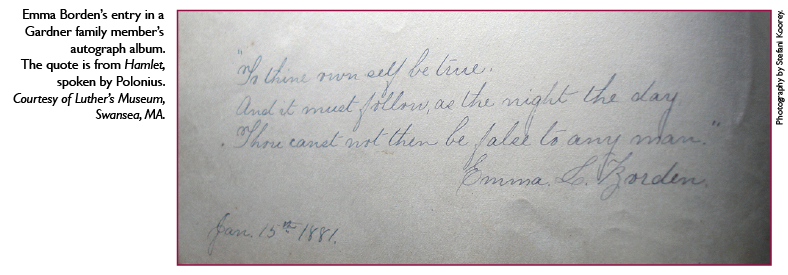 Emma Borden's entry in a
Gardner family member's
autograph album.
The quote is from Hamlet,
spoken by Polonius.
Courtesy of Luther's Museum,
Swansea, MA.
"To thine own self be true.
And it must follow, as the night the day
Thou canst not then be false to any man."
Emma. L. Borden.
Jan. 15th 1881.
Photography by Stefani Koorey.